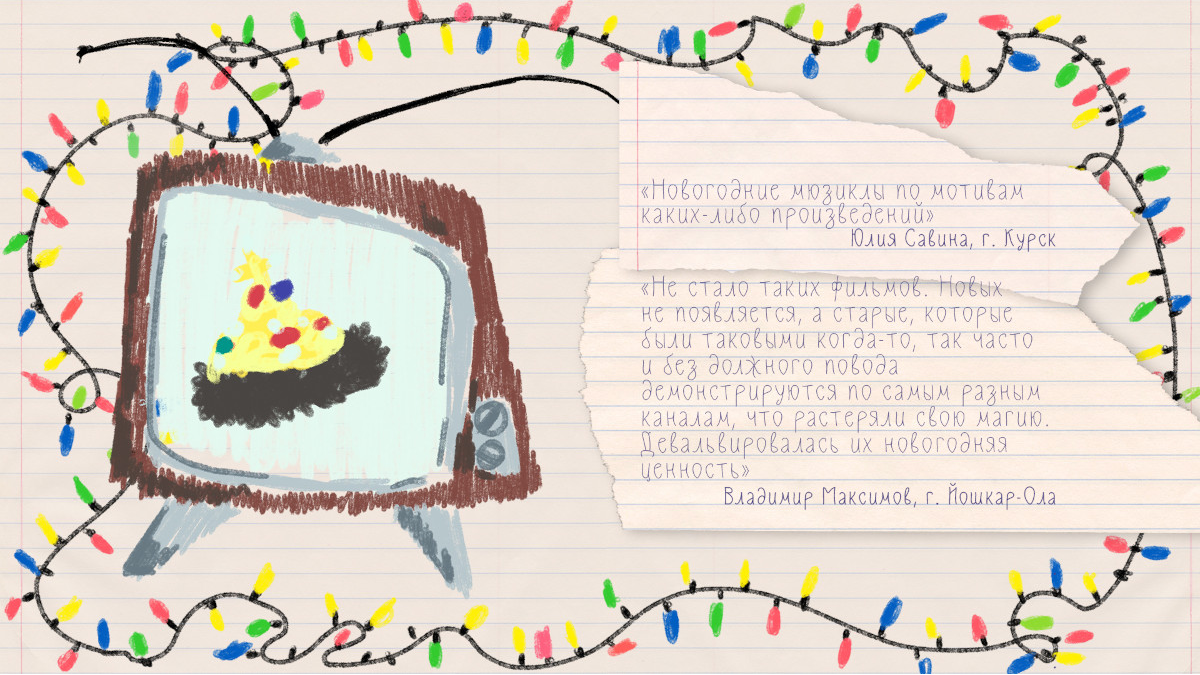 «Новогодние мюзиклы по мотивам
каких-либо произведений»
Юлия Савина, г. Курск
«Не стало таких фильмов. Новых
не появляется, а старые, которые
были таковыми когда-то, так часто
и без должного повода
демонстрируются по самым разным
каналам, что растеряли свою магию.
Девальвировалась их новогодняя
ценность»
Владимир Максимов, г. Йошкар-Ола